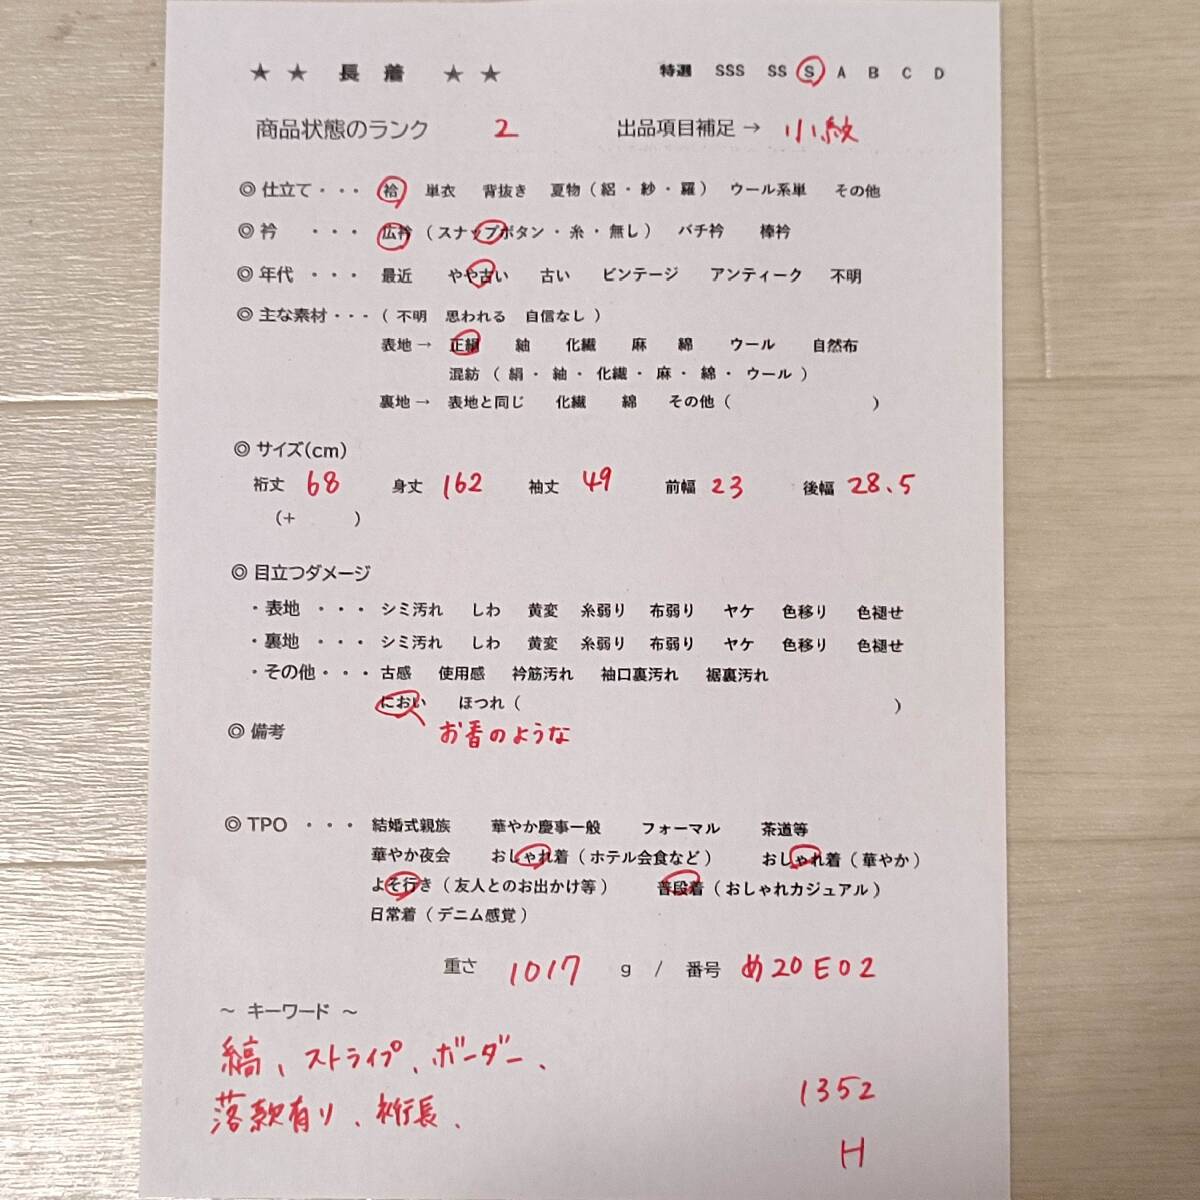 ★ ★ 長 着 ★ ★ 特選 SSS SS S A B C D
商品状態のランク 2 出品項目補足 → 小紋
◎ 仕立て ・・・ 袷 単衣 背抜き 夏物 ( 絽 ・ 紗 ・ 羅 ) ウール系単 その他
◎ 衿 ・・・ 広衿 ( スナップボタン ・ 糸 ・ 無し ) バチ衿 棒衿
◎ 年代 ・・・ 最近 やや古い 古い ビンテージ アンティーク 不明
◎ 主な素材 ・・・ ( 不明 思われる 自信なし )
表地 → 正絹 紬 化繊 麻 綿 ウール 自然布
混紡 ( 絹 ・ 紬 ・ 化繊 ・ 麻 ・ 綿 ・ ウール )
裏地 → 表地と同じ 化繊 綿 その他 ( )
◎ サイズ(cm)
裄丈 68 身丈 162 袖丈 49 前幅 23 後幅 28.5
(+ )
◎ 目立つダメージ
・表地 ・・・ シミ汚れ しわ 黄変 糸弱り 布弱り ヤケ 色移り 色褪せ
・裏地 ・・・ シミ汚れ しわ 黄変 糸弱り 布弱り ヤケ 色移り 色褪せ
・その他 ・・・ 古感 使用感 衿筋汚れ 袖口裏汚れ 裾裏汚れ
におい ほつれ ( )
◎ 備考 お香のような
◎ TPO ・・・ 結婚式親族 華やか慶事一般 フォーマル 茶道等
華やか夜会 おしゃれ着 ( ホテル会食など ) おしゃれ着 ( 華やか )
よそ行き ( 友人とのお出かけ等 ) 普段着 ( おしゃれカジュアル )
日常着 ( デニム感覚 )
重さ 1017 g / 番号 め20E02
～ キーワード ～
縞、ストライプ、ボーダー、
落款有り、裄長、
1352
H